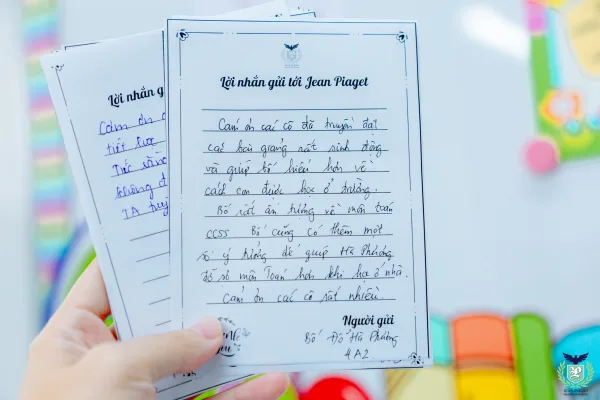 Lời nhắn gửi tới Jean Piaget
Cảm ơn các cô đã truyền đạt
các bài giảng rất sinh động
và giúp bố hiểu hơn về
cách con được học ở trường.
Bố rất ấn tượng về môn toán
CCSS Bố cũng có thêm một
số ý tưởng để giúp Hà Phương
môn Toán hơn khi học ở nhà.
Cảm ơn các cô rất nhiều.
Người gửi
Bố Đỗ Hà Phương
4A2
Lời nhắn g
Cảm ơn
tiết
không